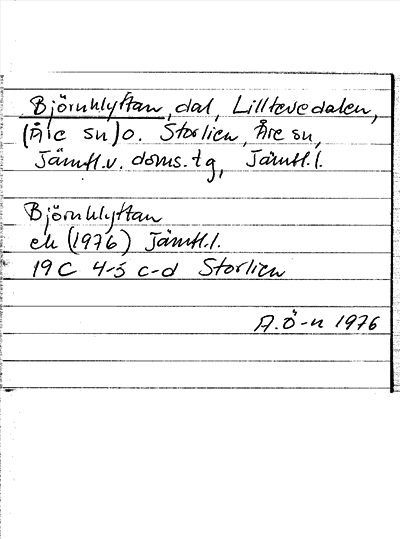 Björnklyftan, dal, Lilltevedalen,
(Åre sn) o. Storlien, Åre sn,
Jämtl.v. doms.tg, Jämtl.l.
Björnklyftan
ek (1976) Jämtl.l.
19 C 4-5 c-d Storlien
A.Ö-n 1976